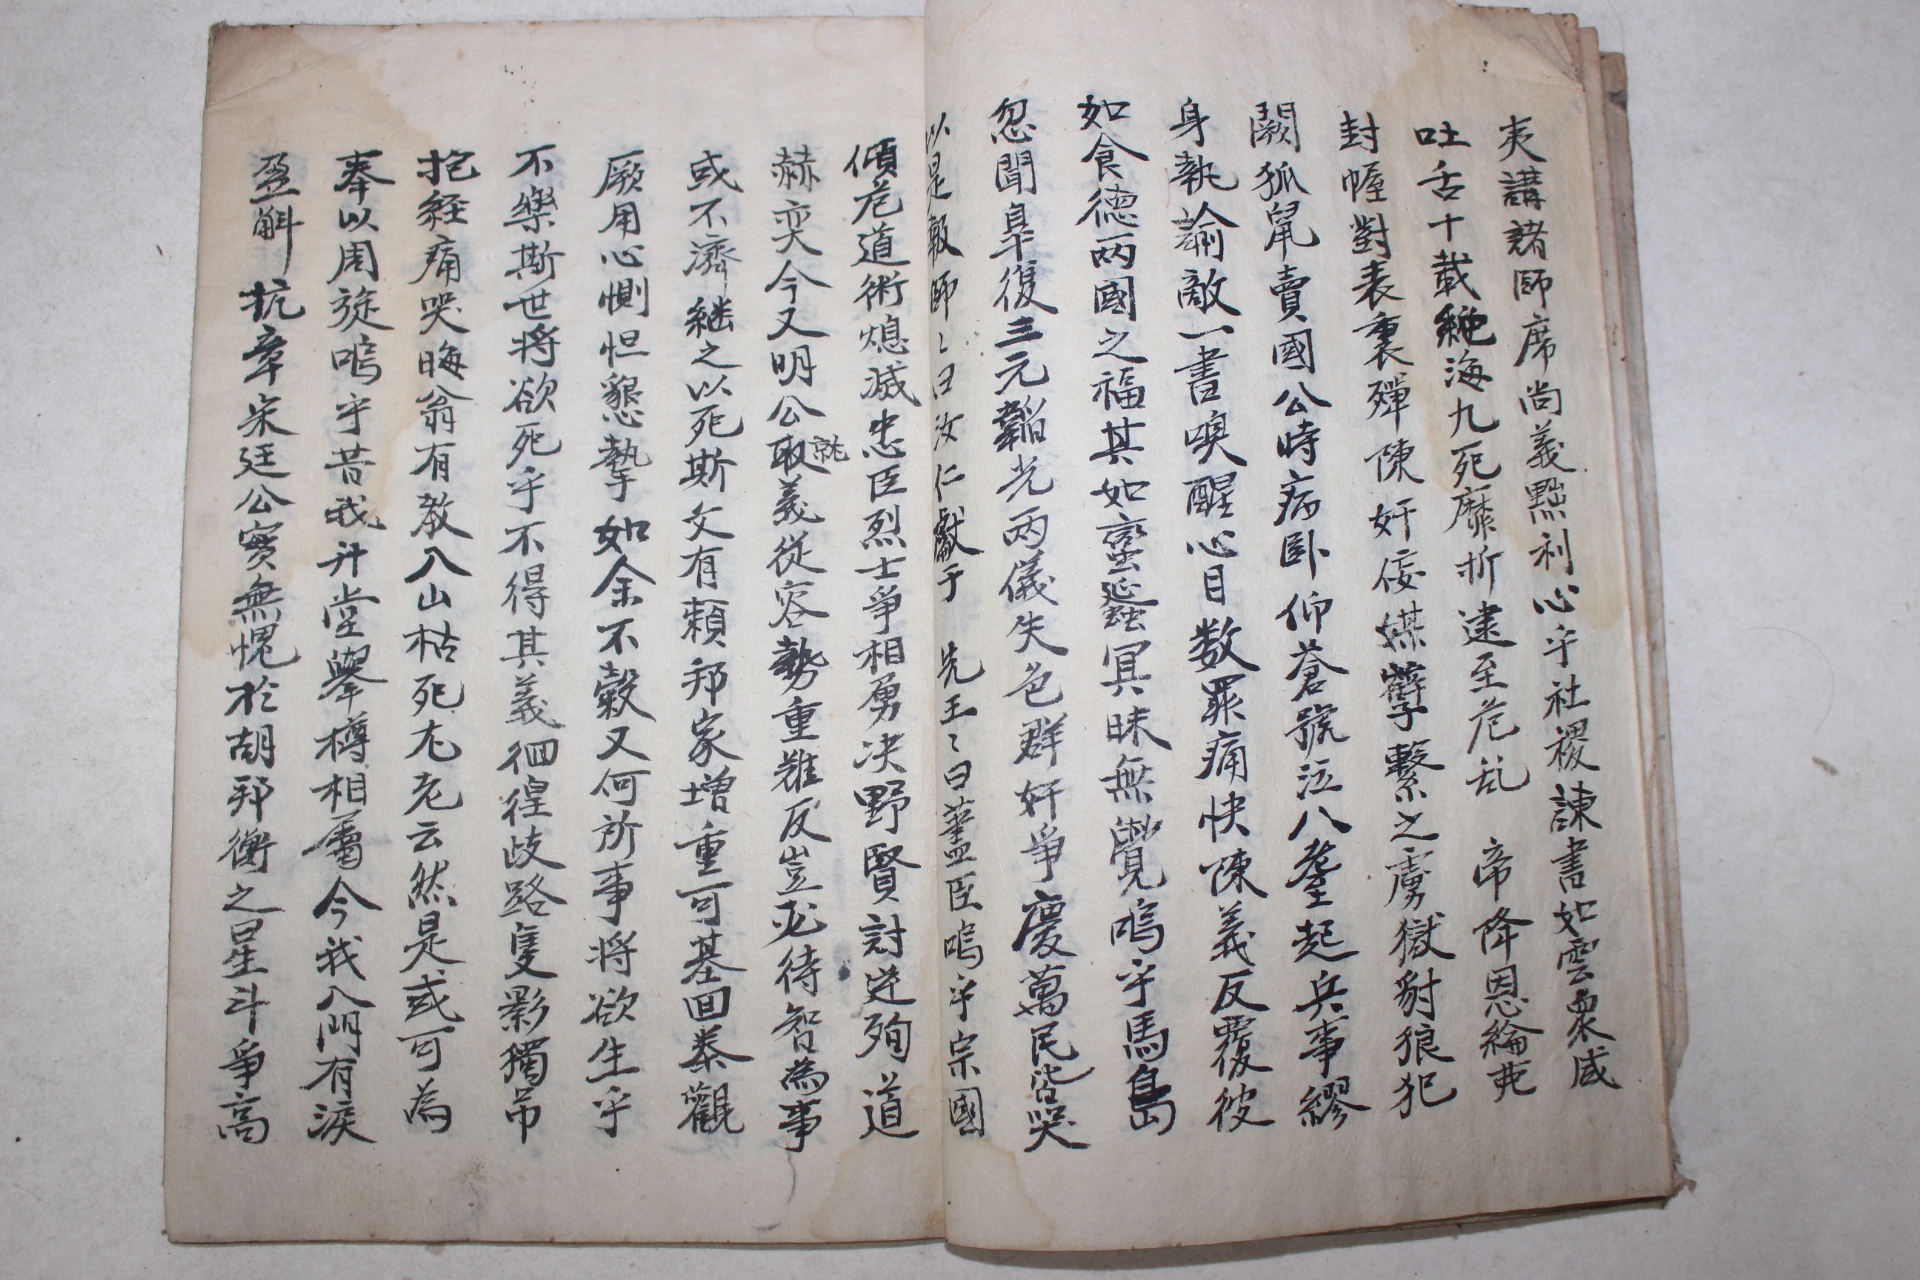 夷講諸師席尚義黜利心乎社稷諫書如雲衆咸
吐舌十載絶海九死靡折逮至危乱 帝降恩綸
封幄對表裏殫陳奸佞媒孼繫之虜獄豺狼犯
闕狐鼠賣國公時病卧仰蒼號泣八耋起兵事繆
身執論敵一書喚醒心目数罪痛快陳義反覆彼
如食德兩國之福其如蠻蜑冥昧無覺嗚乎馬島
忽聞皐復三元韜光兩儀失色群奸爭慶萬民皆哭
以是報師〻曰汝仁獻于 先王〻曰藎臣嗚乎宗國
傾危道術熄滅忠臣烈士爭相勇决野賢討逆殉道
赫奕今又明公取就義從容勢重難反豈必待智為事
或不濟継之以死斯文有賴邦家增重可基回泰觀
厥用心惻怛懇摯如余不穀又何所事将欲生乎
不樂斯世将欲死乎不得其義徊徨歧路隻影獨吊
抱経痛哭晦翁有教入山枯死尤老云然是或可為
奉以周旋嗚乎昔我升堂擧樽相屬今我入門有淚
盈斛抗章宋廷公實無愧於胡邦衡之星斗爭高